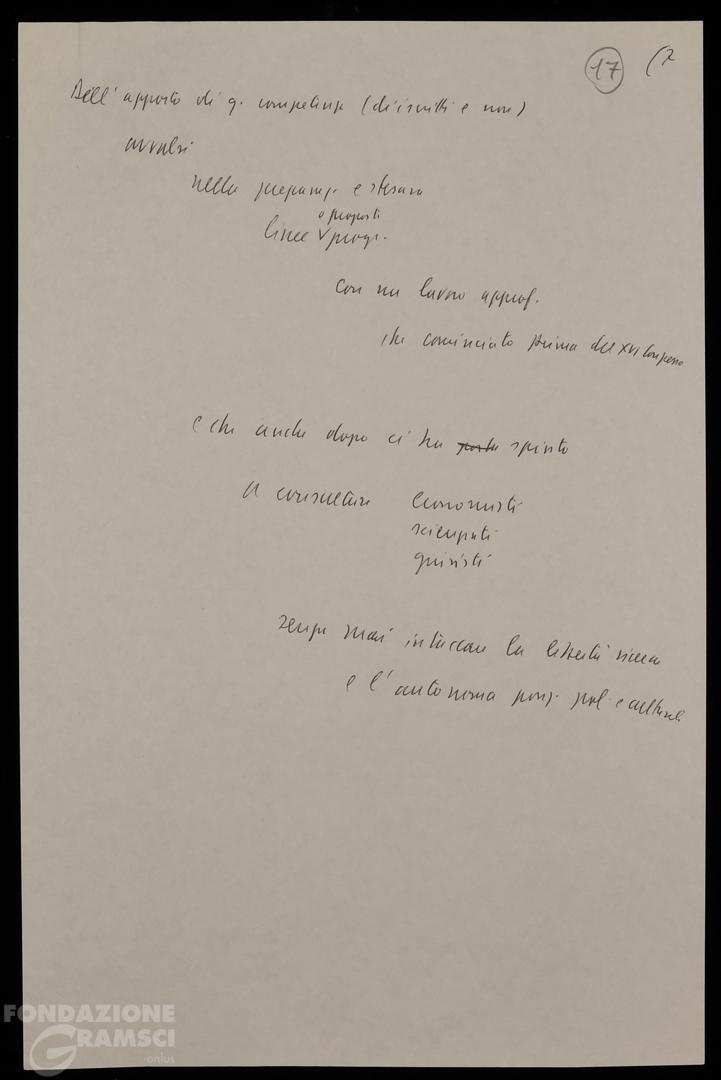 17 (7
Dell'apporto di q. competenze (di iscritti e non)
avvalsi
nella preparaz. e stesura
o proposti
linee V progr.
con un lavoro approf.
che cominciato prima del XVI Congresso
e che anche dopo ci ha spinto
a consultare economisti
scienziati
giuristi
senza mai intaccare la libertà ricerca
e l'autonoma posiz. pol. e culturale
FONDAZIONE
GRAMSCI
onlus